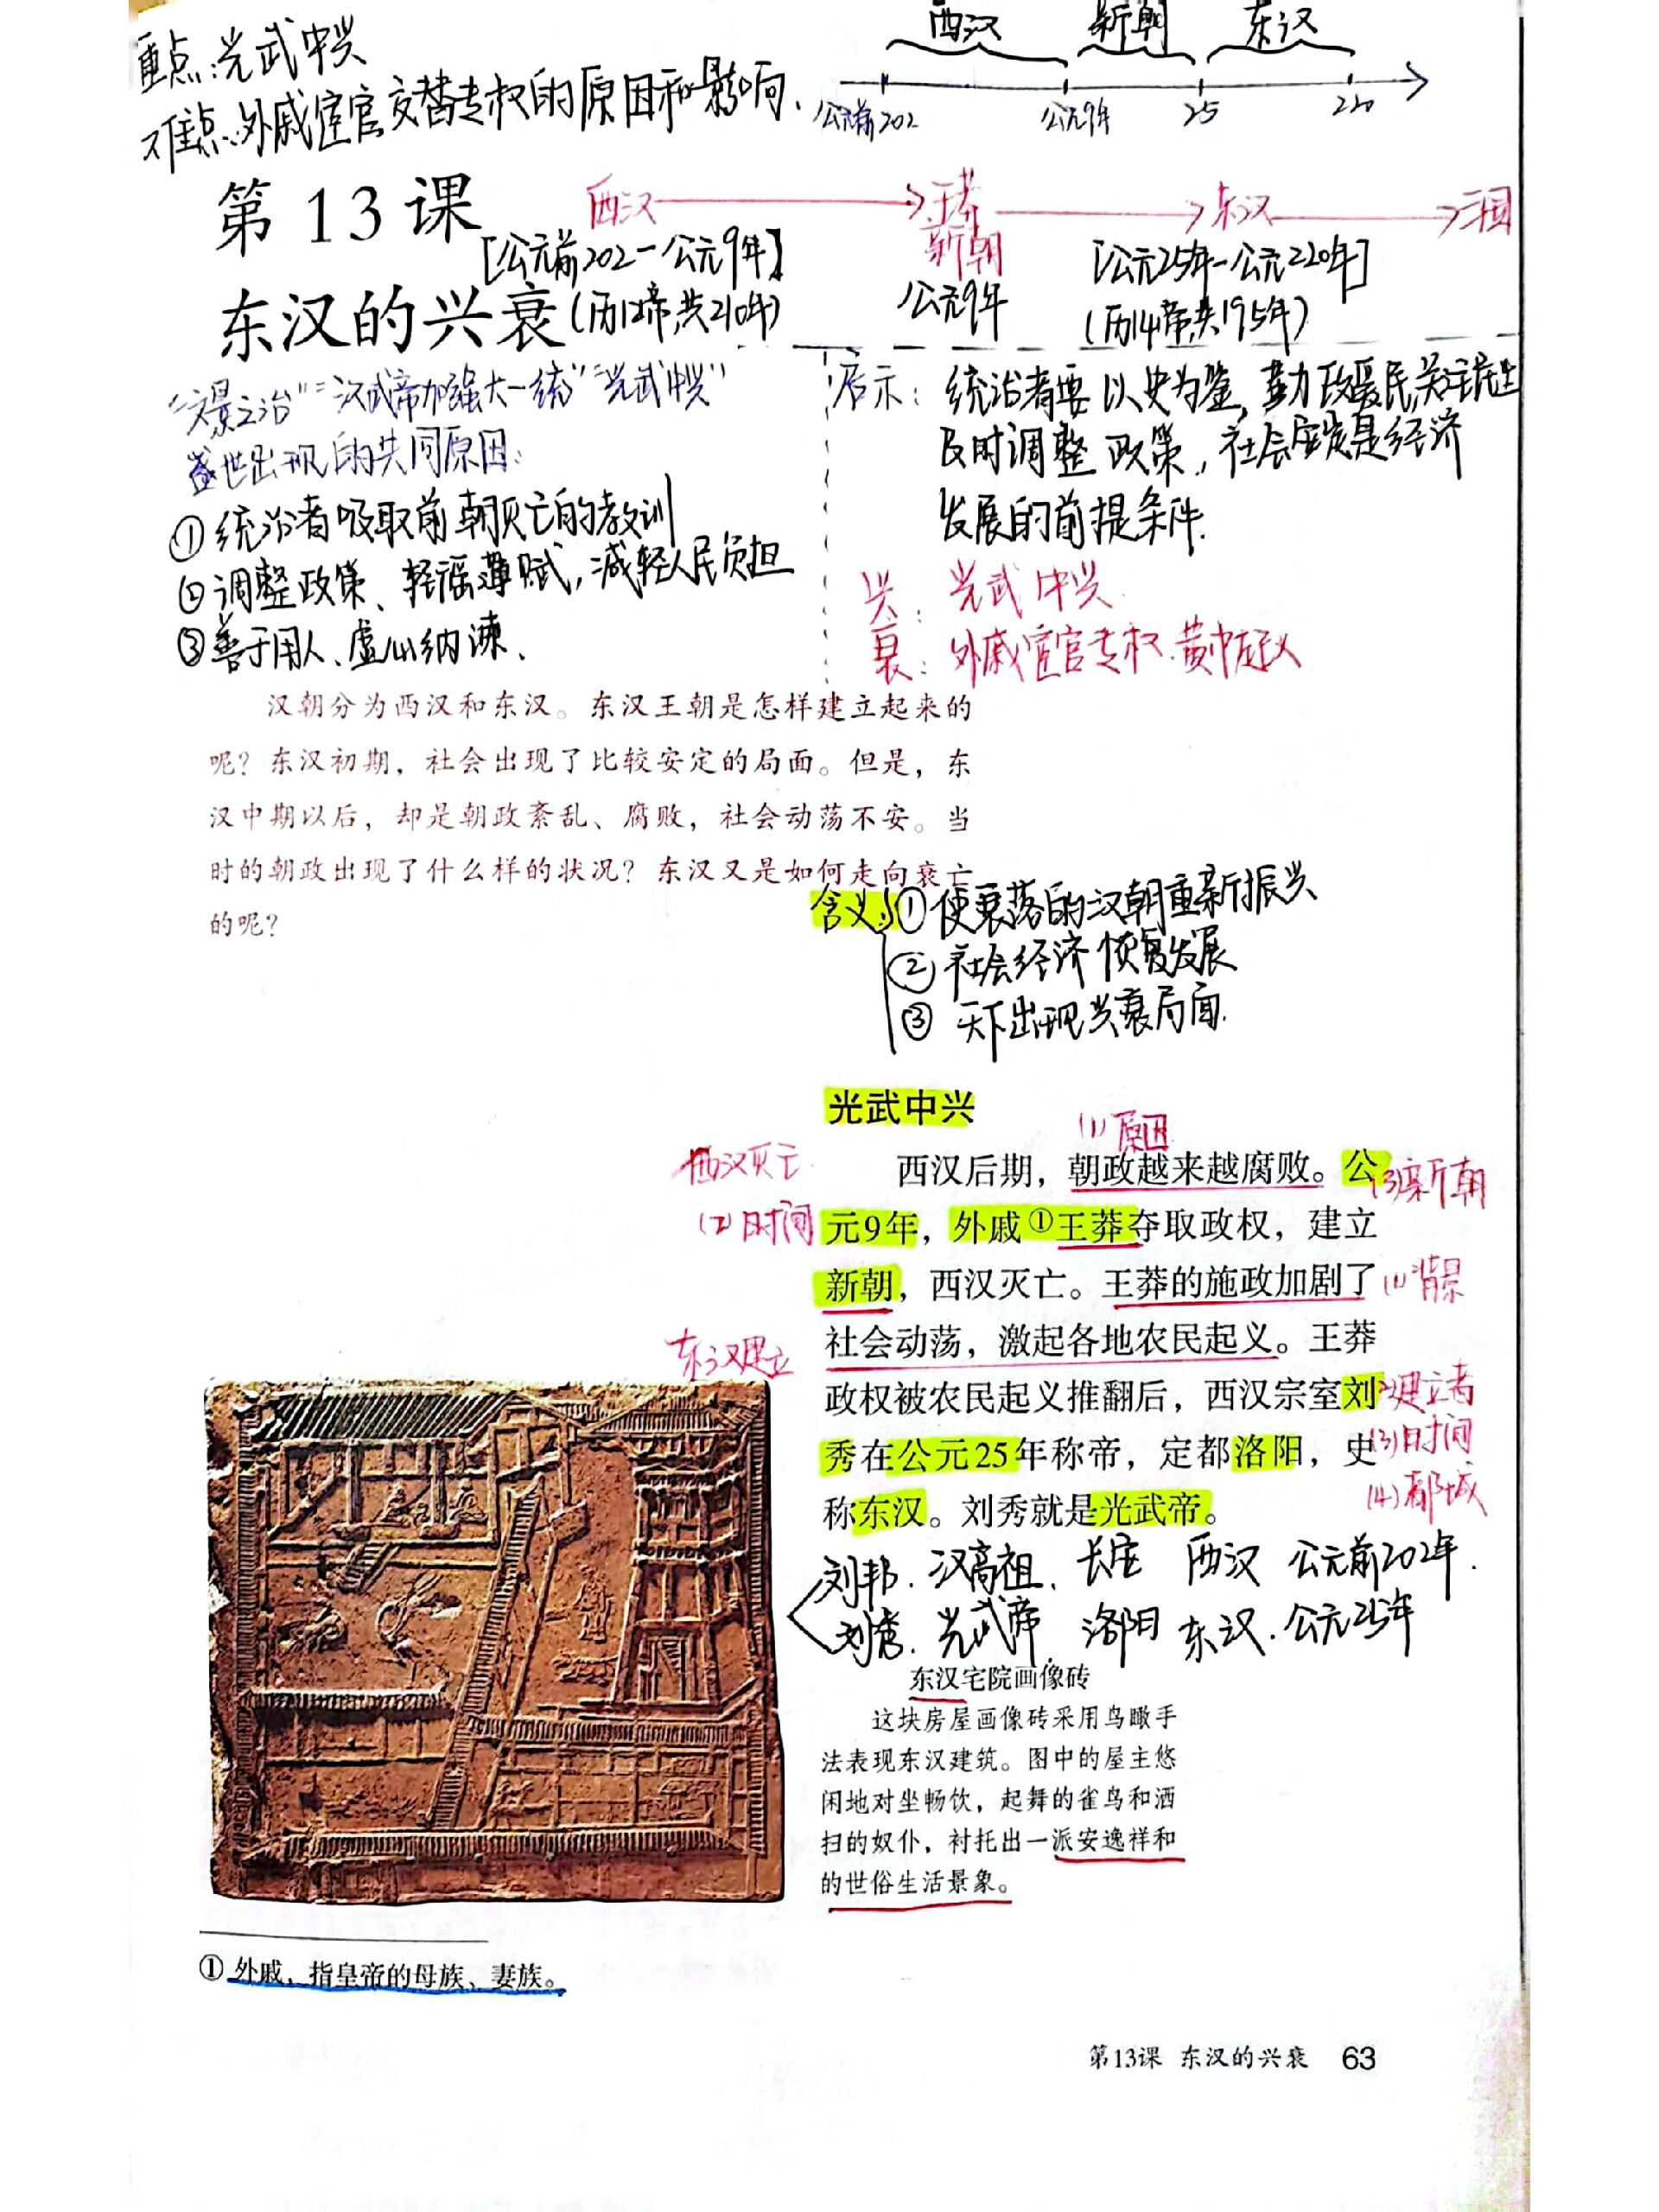 重点:光武中兴
难点:外戚宦官交替专权的原因和影响.
西汉 新朝 东汉
公元前202 公元9年 25 220
第13课
西汉 王莽 东汉 三国
新朝
[公元前202-公元9年] 公元9年 [公元25年-公元220年]
东汉的兴衰(历12帝,共210年) (历14帝,共195年)
“文景之治”“汉武帝加强大一统”“光武中兴”
盛世出现的共同原因:
①统治者吸取前朝灭亡的教训
②调整政策、轻徭薄赋,减轻人民负担
③善于用人、虚心纳谏、
启示:统治者要以史为鉴,勤政爱民,关注民生
及时调整政策,社会安定是经济
发展的前提条件.
兴:光武中兴
衰:外戚宦官专权.黄巾起义
汉朝分为西汉和东汉。东汉王朝是怎样建立起来的
呢?东汉初期,社会出现了比较安定的局面。但是,东
汉中期以后,却是朝政紊乱、腐败,社会动荡不安。当
时的朝政出现了什么样的状况?东汉又是如何走向衰亡
的呢?
含义:①使衰落的汉朝重新振兴
②社会经济恢复发展
③天下出现兴衰局面.
光武中兴
(1)原因
西汉灭亡
西汉后期,朝政越来越腐败。公
(3)新朝
(2)时间
元9年,外戚①王莽夺取政权,建立
新朝,西汉灭亡。王莽的施政加剧了
(1)背景
社会动荡,激起各地农民起义。王莽
东汉建立
政权被农民起义推翻后,西汉宗室刘
(2)建立者
秀在公元25年称帝,定都洛阳,史
(3)时间
称东汉。刘秀就是光武帝。
(4)都城
刘邦.汉高祖.长安 西汉 公元前202年.
刘秀.光武帝 洛阳 东汉.公元25年
东汉宅院画像砖
这块房屋画像砖采用鸟瞰手
法表现东汉建筑。图中的屋主悠
闲地对坐畅饮,起舞的雀鸟和洒
扫的奴仆,衬托出一派安逸祥和
的世俗生活景象。
①外戚,指皇帝的母族、妻族。
第13课 东汉的兴衰 63